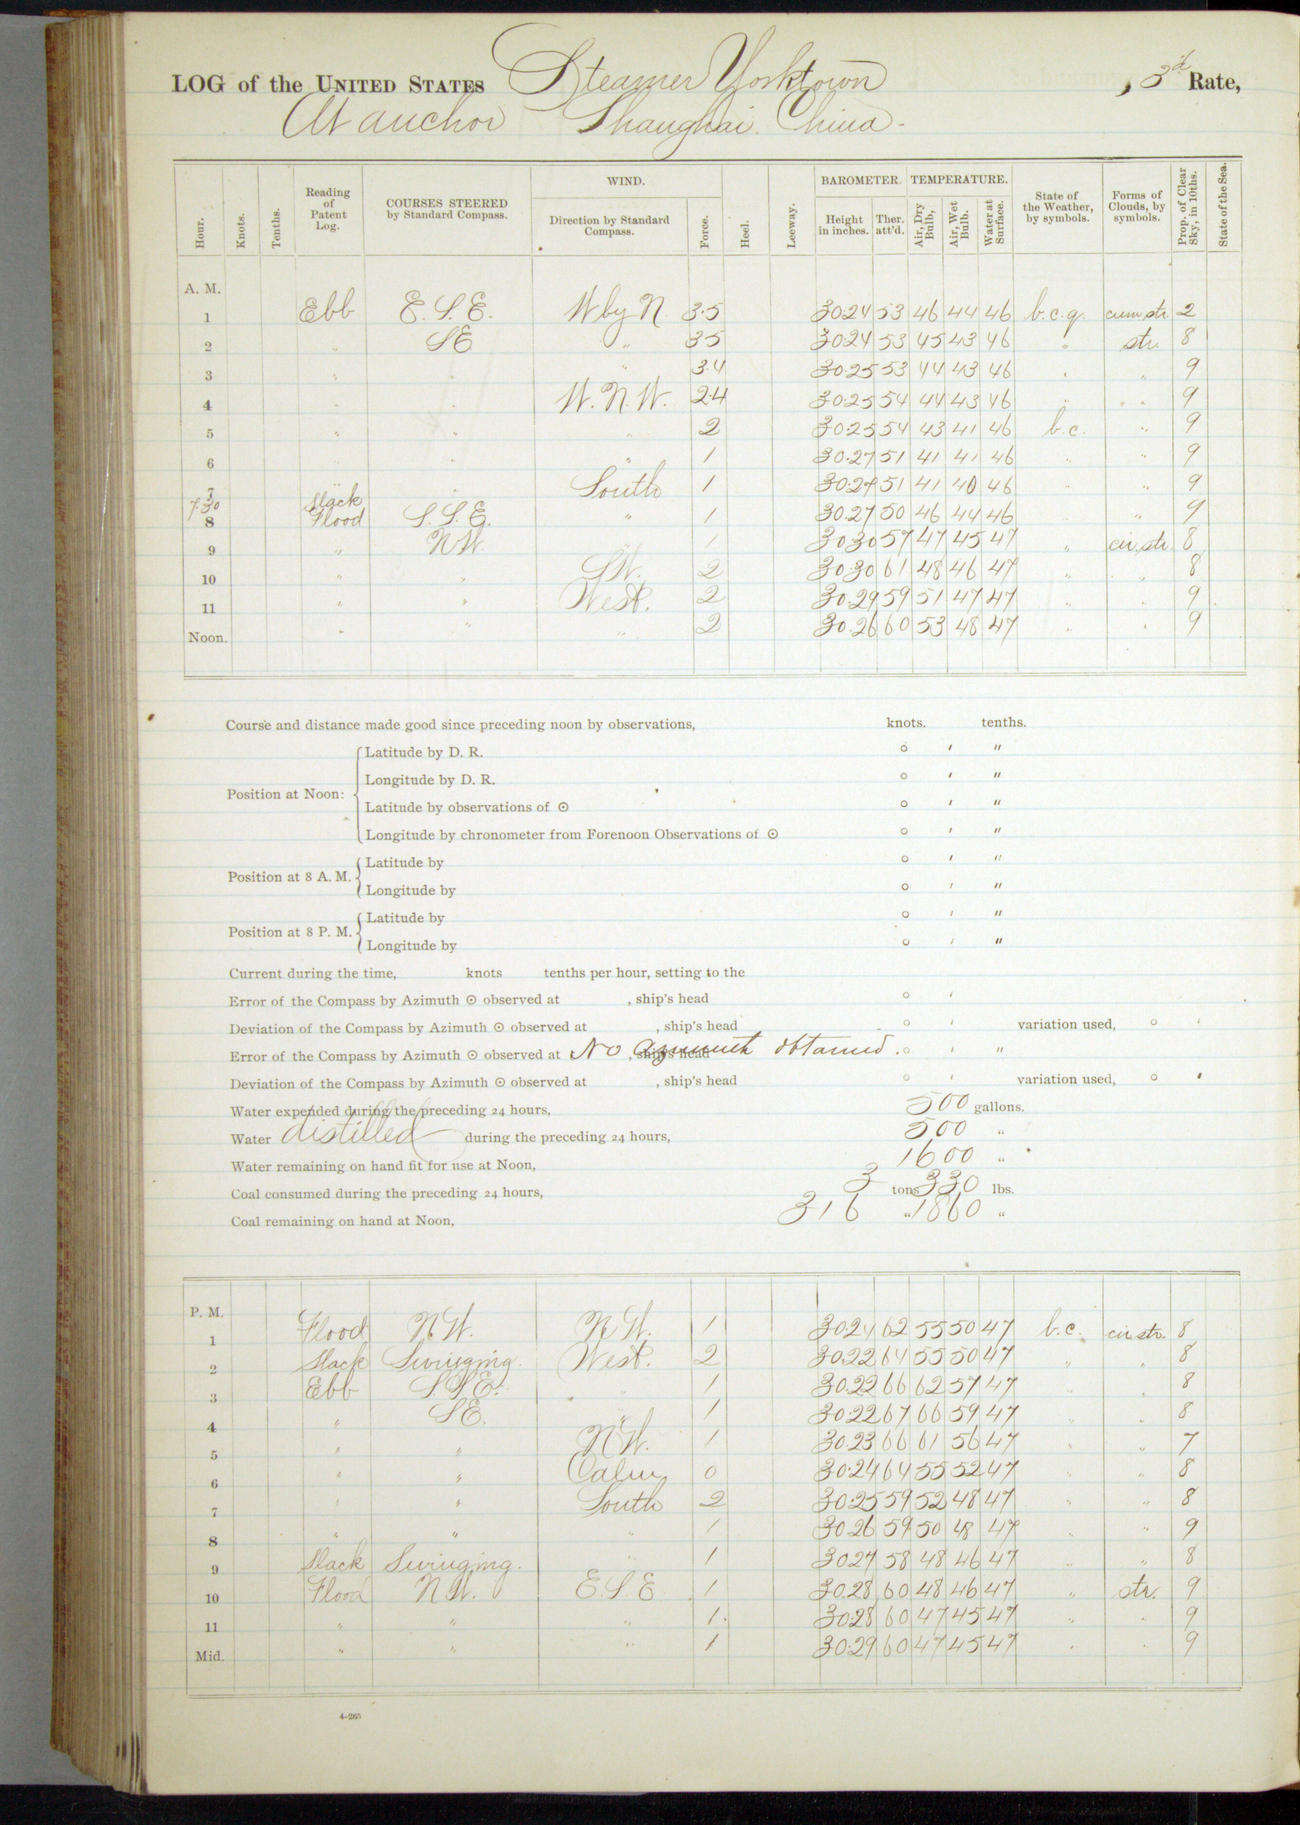 LOG of the UNITED STATES Steamer Yorktown , 3d Rate,
At anchor Shanghai. China.
Hour. Knots. Tenths. Reading of Patent Log. COURSES STEERED by Standard Compass. WIND. Direction by Standard Compass. Force. Heel. Leeway. BAROMETER. Height in inches. Ther. att'd. TEMPERATURE. Air, Dry Bulb, Air, Wet Bulb. Water at Surface. State of the Weather, by symbols. Forms of Clouds, by symbols. Prop. of Clear Sky, in 10ths. State of the Sea.
A. M.
1 Ebb E.S.E. W by N. 3.5 30.24 53 46 44 46 b.c.q. cum.str. 2
2 " SE " 3.5 30.24 53 45 43 46 " str. 8
3 " " " 3.4 30.25 53 44 43 46 " " 9
4 " " W.N.W. 2.4 30.25 54 44 43 46 " " 9
5 " " " 2 30.25 54 43 41 46 b.c. " 9
6 " " " 1 30.27 51 41 41 46 " " 9
7 " " South 1 30.27 51 41 40 46 " " 9
7.30 Slack
8 Flood S.S.E. " 1 30.27 50 46 44 46 " " 9
9 " NW. " 1 30.30 57 47 45 47 " cir.str. 8
10 " " SW. 2 30.30 61 48 46 47 " " 8
11 " " West. 2 30.29 59 51 47 47 " " 9
Noon. " " " 2 30.26 60 53 48 47 " " 9
Course and distance made good since preceding noon by observations, knots. tenths.
Position at Noon: Latitude by D. R. ° ′ ″
Longitude by D. R. ° ′ ″
Latitude by observations of ☉ ° ′ ″
Longitude by chronometer from Forenoon Observations of ☉ ° ′ ″
Position at 8 A. M. Latitude by ° ′ ″
Longitude by ° ′ ″
Position at 8 P. M. Latitude by ° ′ ″
Longitude by ° ′ ″
Current during the time, knots tenths per hour, setting to the
Error of the Compass by Azimuth ☉ observed at , ship's head ° ′
Deviation of the Compass by Azimuth ☉ observed at , ship's head ° ′ variation used, ° ′
Error of the Compass by Azimuth ☉ observed at No azimuth obtained. , ship's head ° ′ ″
Deviation of the Compass by Azimuth ☉ observed at , ship's head ° ′ variation used, ° ′
Water expended during the preceding 24 hours, 500 gallons.
Water distilled during the preceding 24 hours, 500 "
Water remaining on hand fit for use at Noon, 1600 "
Coal consumed during the preceding 24 hours, 3 tons 330 lbs.
Coal remaining on hand at Noon, 316 " 1860 "
P. M.
1 Flood N.W. N.W. 1 30.24 62 55 50 47 b.c. cir.str. 8
2 Slack Swinging. West. 2 30.22 64 55 50 47 " " 8
3 Ebb S.S.E. " 1 30.22 66 62 57 47 " " 8
4 " SE. " 1 30.22 67 66 59 47 " " 8
5 " " N.W. 1 30.23 66 61 56 47 " " 7
6 " " Calm 0 30.24 64 55 52 47 " " 8
7 " " South 2 30.25 59 52 48 47 " " 8
8 " " " 1 30.26 59 50 48 47 " " 9
9 Slack Swinging. " 1 30.27 58 48 46 47 " " 8
10 Flood N.W. E.S.E 1 30.28 60 48 46 47 " str. 9
11 " " " 1. 30.28 60 47 45 47 " " 9
Mid. " " " 1 30.29 60 47 45 47 " " 9
4-265